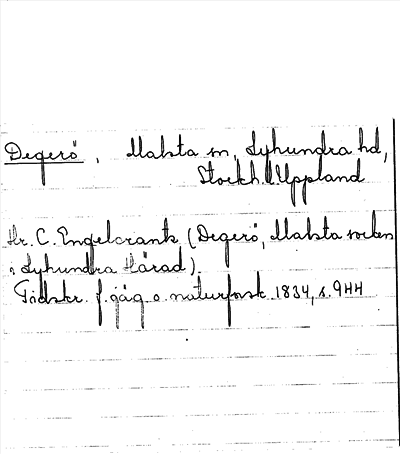 Degerö, Malsta sn, Lyhundra hd,
Stockh. l. Uppland
Hr. C. Engelcrantz (Degerö, Malsta socken
i Lyhundra Härad).
Tidskr. f. jäg. o. naturforsk. 1834, s. 944